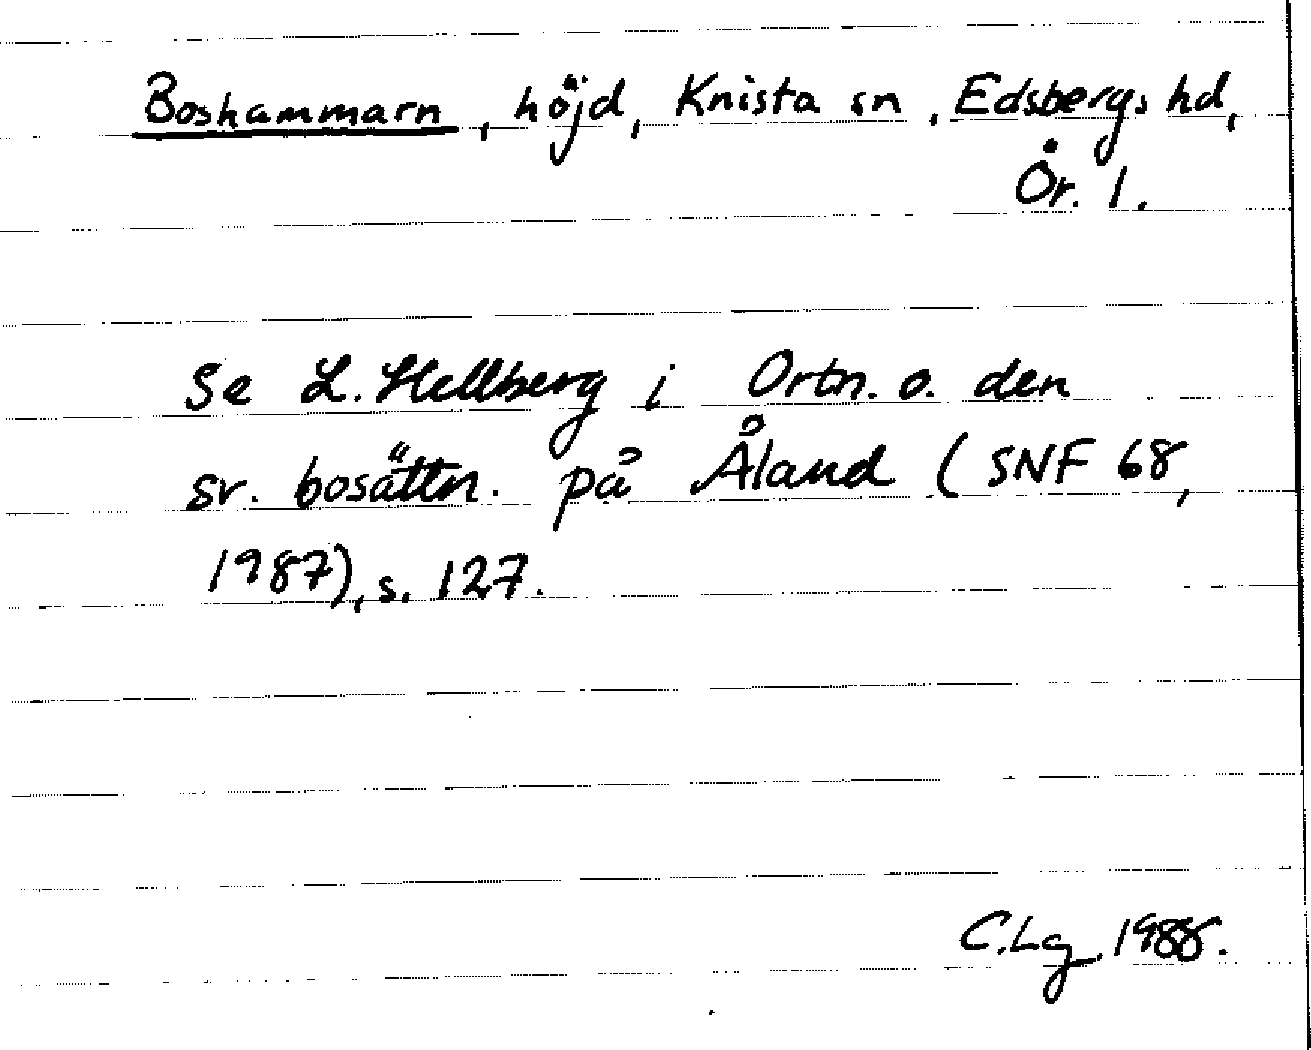 Boshammarn, höjd, Knista sn, Edsbergs hd,
Ör. l.
Se L. Hellberg i Ortn. o. den
sv. bosättn. på Åland (SNF 68,
1987), s. 127.
C.Lg. 1988.